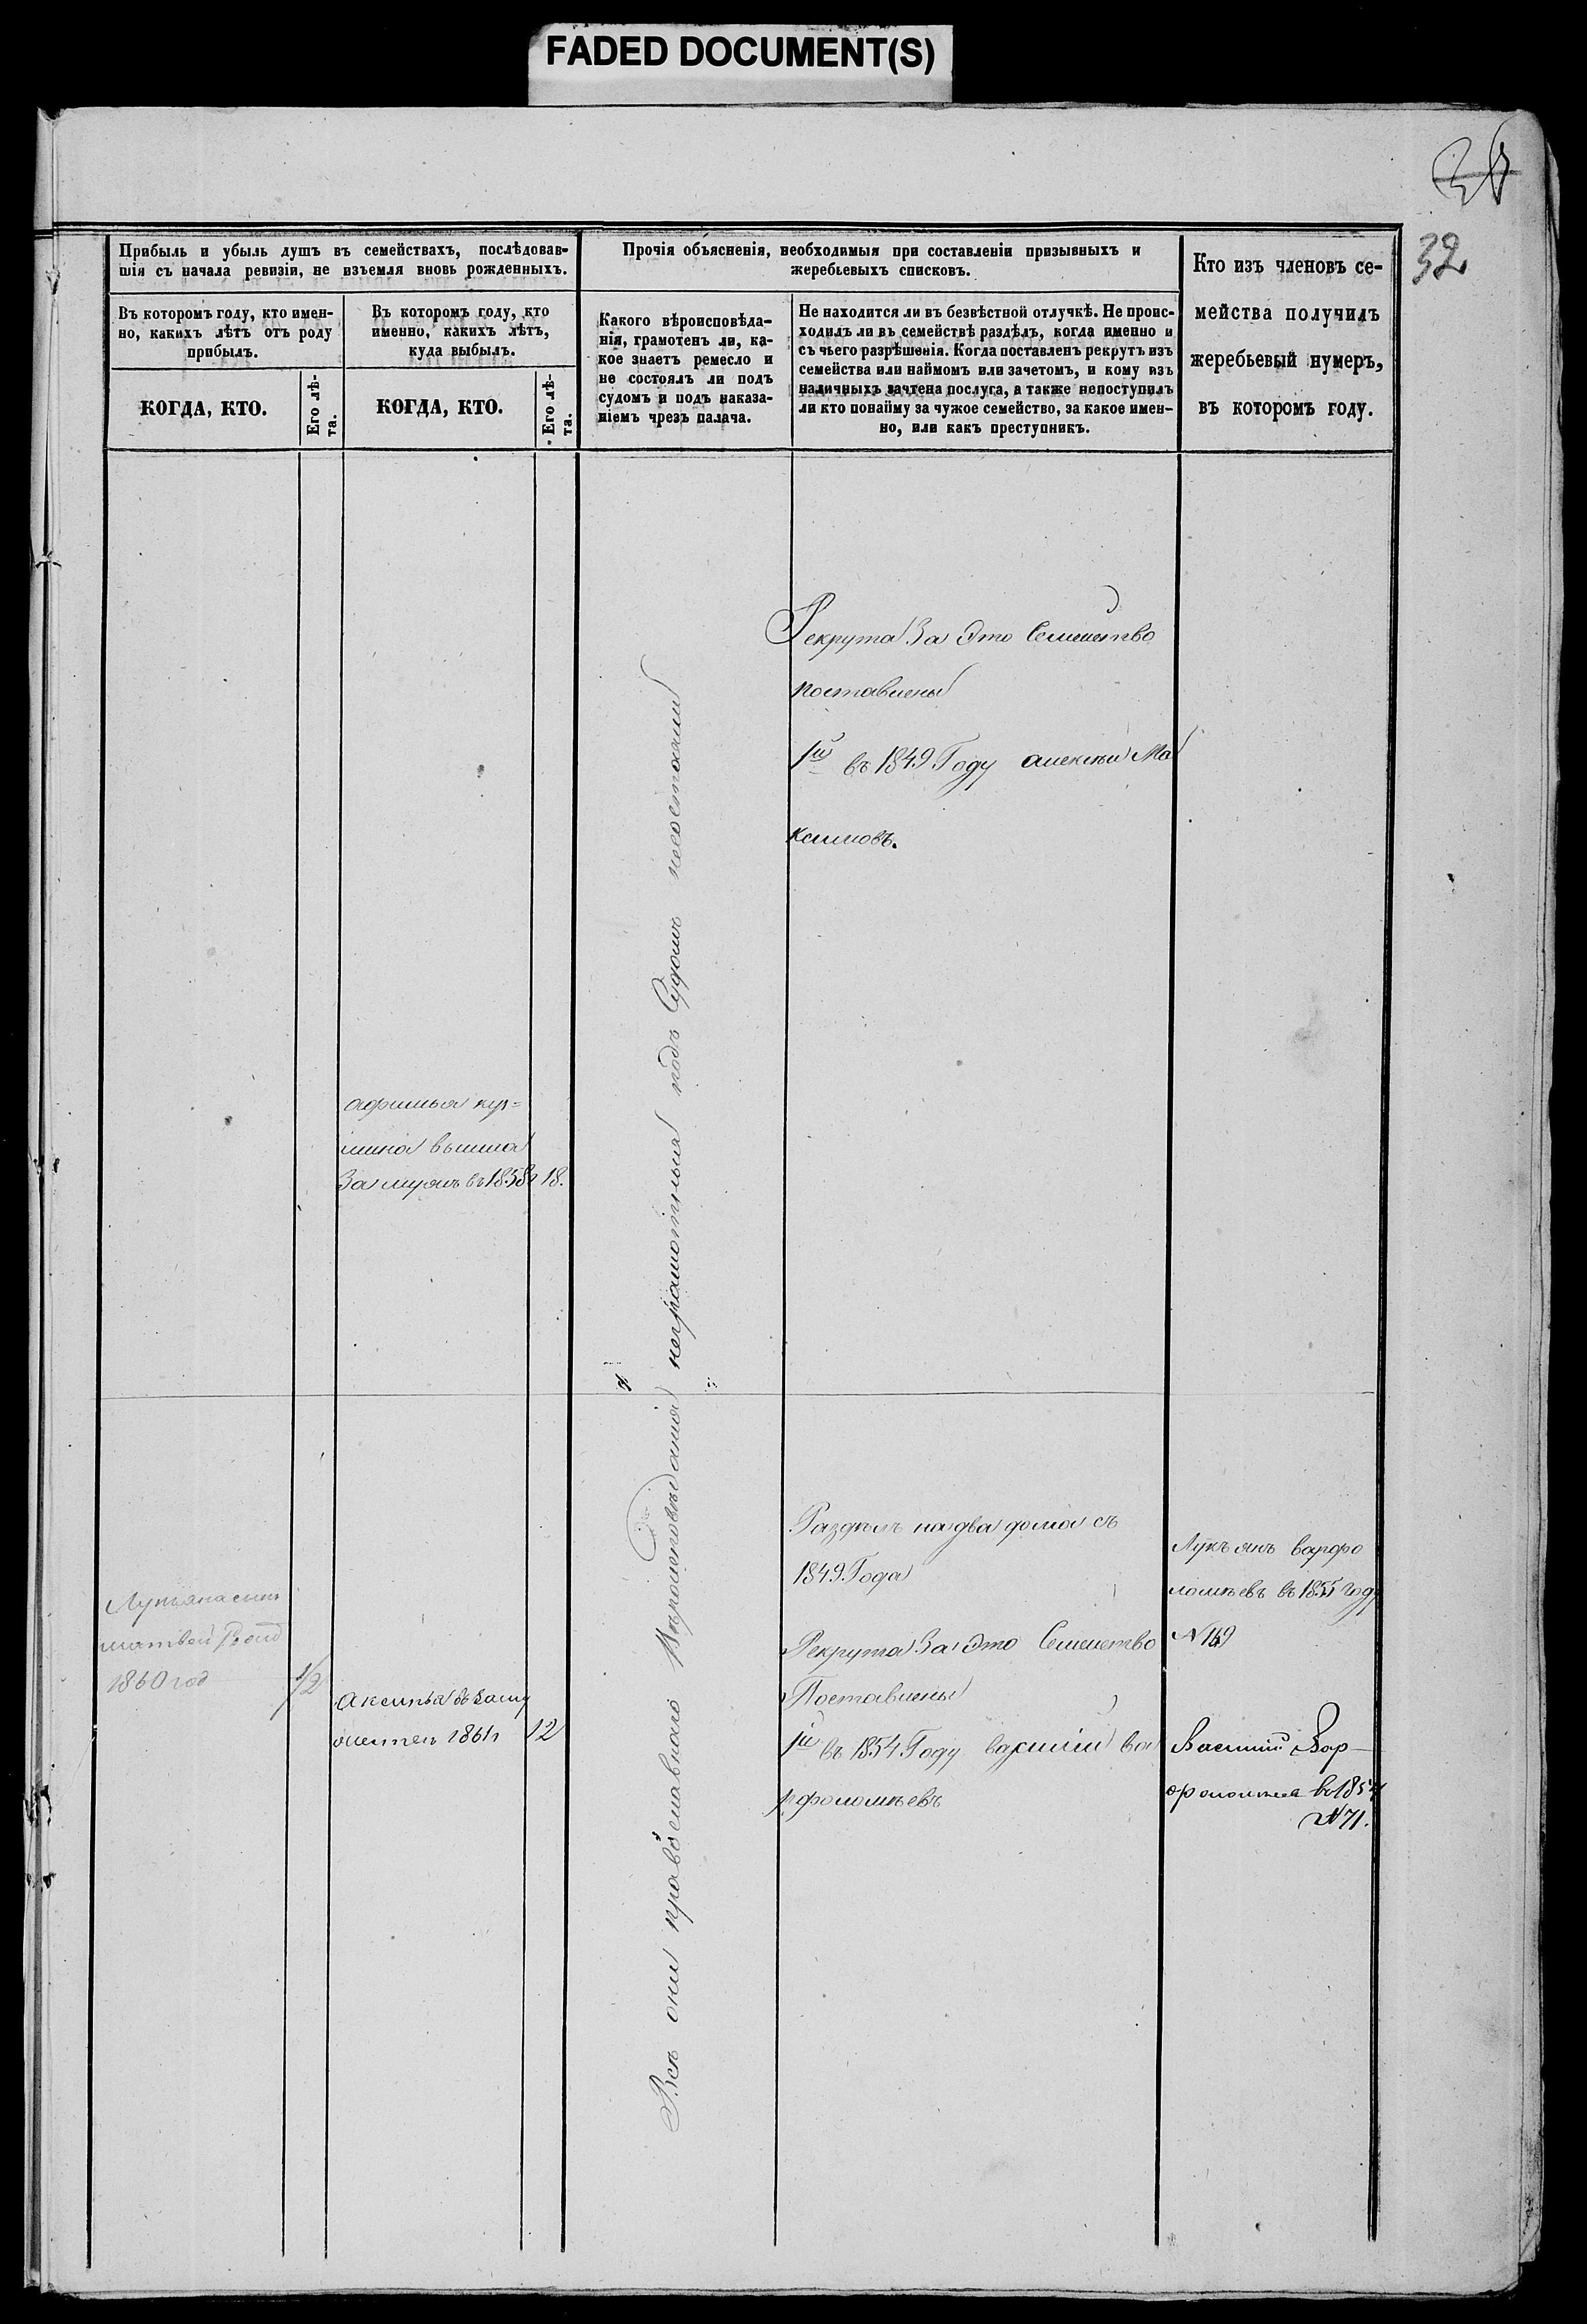 FADED DOCUMENT(S)
32
Прибыль и убыль душъ въ семействахъ, послѣдовав-
шія съ начала ревизіи, не изъемля вновь рожденныхъ.
Въ которомъ году, кто имен-
но, какихъ лѣтъ отъ роду
прибылъ.
КОГДА, КТО.
Его лѣ-
та.
Въ которомъ году, кто
именно, какихъ лѣтъ,
куда выбылъ.
КОГДА, КТО.
Его лѣ-
та.
Прочія объясненія, необходимыя при составленіи призывныхъ и
жеребьевыхъ списковъ.
Какого вѣроисповѣда-
нія, грамотенъ ли, ка-
кое знаетъ ремесло и
не состоялъ ли подъ
судомъ и подъ наказа-
ніемъ чрезъ палача.
Не находится ли въ безвѣстной отлучкѣ. Не проис-
ходилъ ли въ семействѣ раздѣлъ, когда именно и
съ чьего разрѣшенія. Когда поставленъ рекрутъ изъ
семейства или наймомъ или зачетомъ, и кому изъ
наличныхъ зачтена послуга, а также непоступилъ
ли кто понайму за чужое семейство, за какое имен-
но, или какъ преступникъ.
Кто изъ членовъ се-
мейства получилъ
жеребьевый нумеръ,
въ которомъ году.
Рекрута За Это Семейство
поставлены
1й въ 1849 Году алексѣй Ма
ксимовъ.
афимья куз=
мина вышла
За мужъ въ 1858 18.
Всѣ они православнаго Вѣроисповѣданія неграмотныя подъ Судомъ несостояли
Раздѣлъ на два дома съ
1849 Года
Рекрута За Это Семейство
Поставлены
1й въ 1854 Году василій ва
рфоломѣевъ
Лукъянъ варфо
ломѣевъ въ 1855 году
N 169
Василий Вар-
фоломѣев
N 71.
Лукъяна сынъ
матвей
1860 год 1/2
Аксинья
1861 12